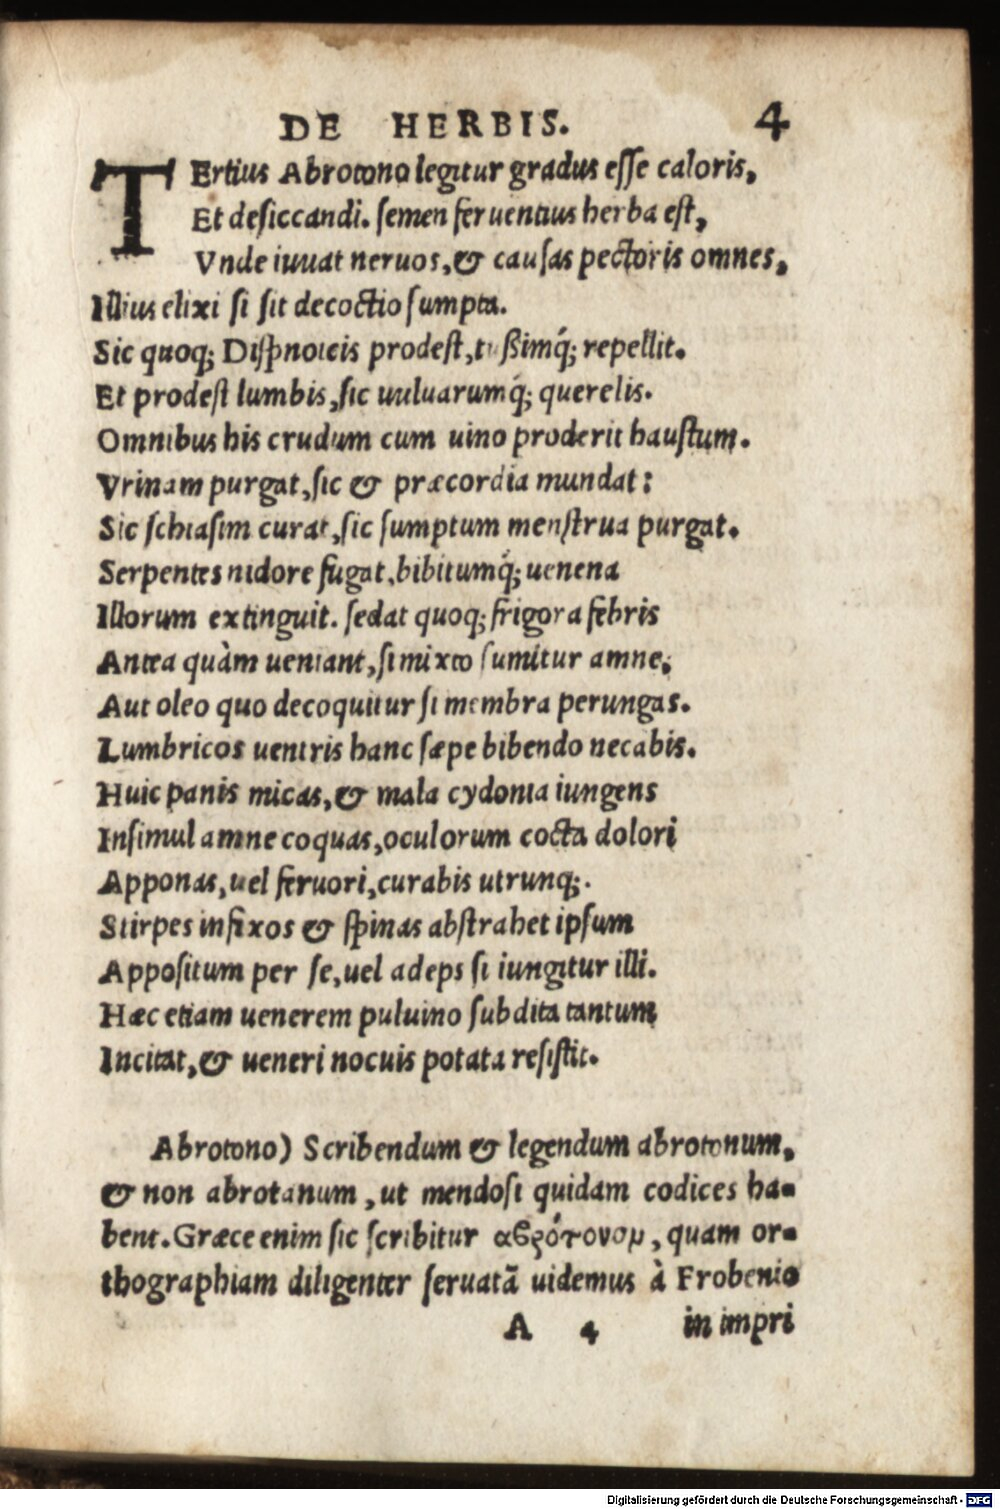 DE HERBIS. 4
TErtius Abrotono legitur gradus esse caloris,
Et desiccandi. semen feruentius herba est,
Vnde iuuat neruos, & causas pectoris omnes,
Illius elixi si sit decoctio sumpta.
Sic quoq; Dispnoicis prodest, tußimq́; repellit.
Et prodest lumbis, sic uuluarumq́; querelis.
Omnibus his crudum cum uino proderit haustum.
Vrinam purgat, sic & præcordia mundat:
Sic schiasim curat, sic sumptum menstrua purgat.
Serpentes nidore fugat, bibitumq́; uenena
Illorum extinguit. sedat quoq; frigora febris
Antea quàm ueniant, si mixto sumitur amne,
Aut oleo quo decoquitur si membra perungas.
Lumbricos uentris hanc sæpe bibendo necabis.
Huic panis micas, & mala cydonia iungens
Insimul amne coquas, oculorum cocta dolori
Apponas, uel feruori, curabis utrunq;.
Stirpes infixos & spinas abstrahet ipsum
Appositum per se, uel adeps si iungitur illi.
Hæc etiam uenerem puluino subdita tantum
Incitat, & ueneri nocuis potata resistit.
Abrotono) Scribendum & legendum abrotonum,
& non abrotanum, ut mendosi quidam codices ha-
bent. Græce enim sic scribitur αβρότονομ, quam or-
thographiam diligenter seruatã uidemus à Frobenio
A 4 in impri
Digitalisierung gefördert durch die Deutsche Forschungsgemeinschaft - DFG